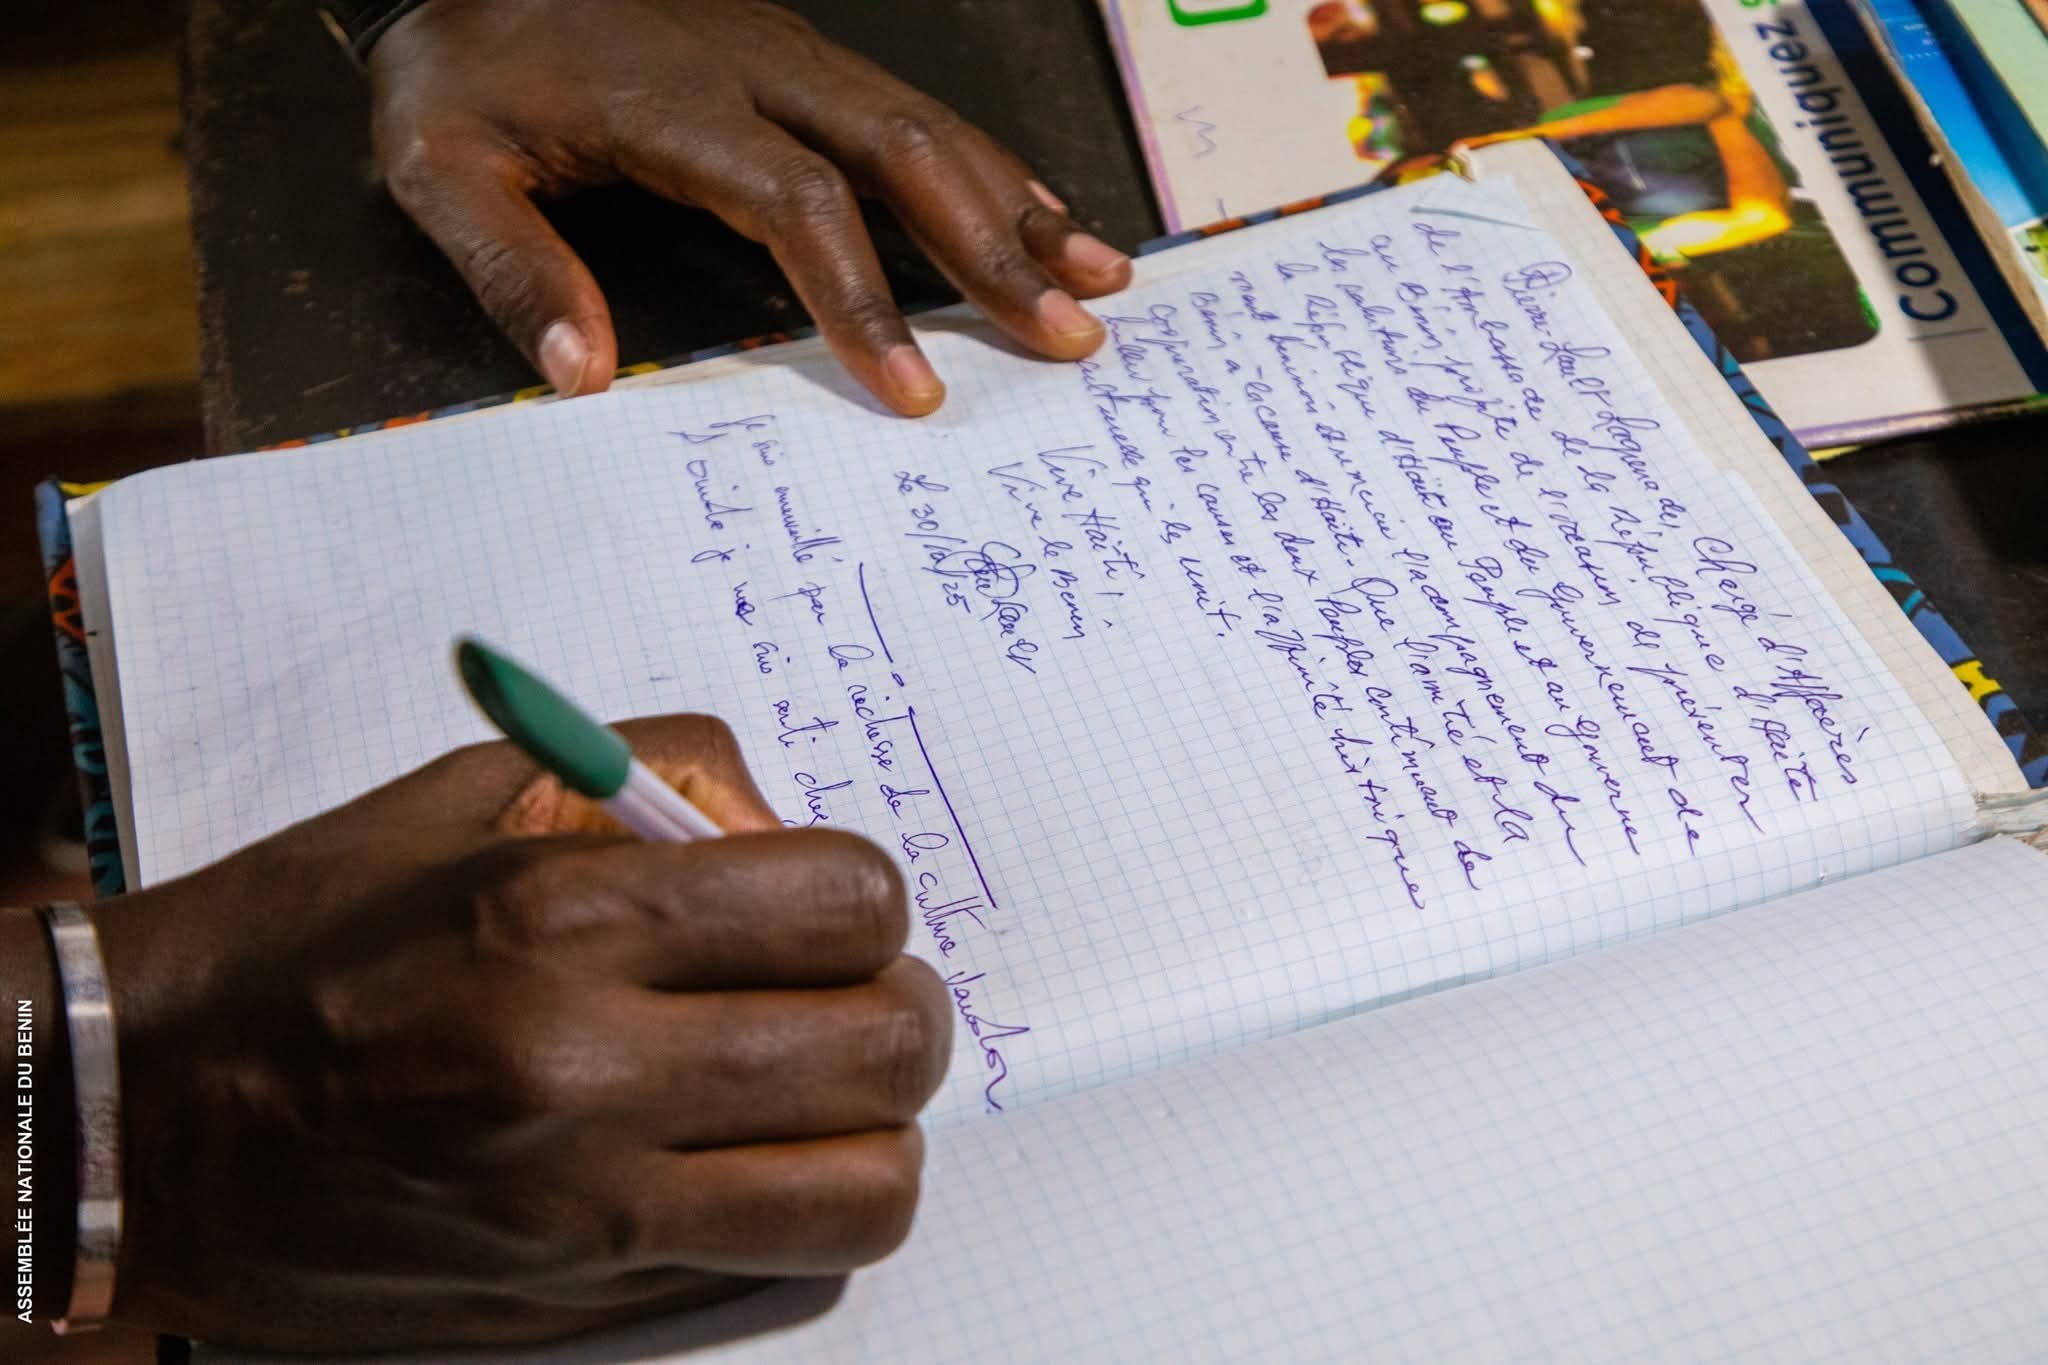 Communiquez
Chargé d'Affaires
de l'Ambassade de la République d'Haïti
au Bénin, profite de l'occasion de présenter
les salutations du Peuple et du Gouvernement de
la République d'Haïti au Peuple et au Gouverne
ment béninois et remercie l'accompagnement du
Bénin à la cause d'Haïti. Que l'amitié et la
coopération entre les deux Peuples continuent de
pour les causes et l'affinité historique
culturelle qui les unit.
Vive Haïti !
Vive le Bénin
Le 30/ /25
Je suis émerveillé par la richesse de la culture
A Ouidah je me suis senti chez
ASSEMBLÉE NATIONALE DU BENIN